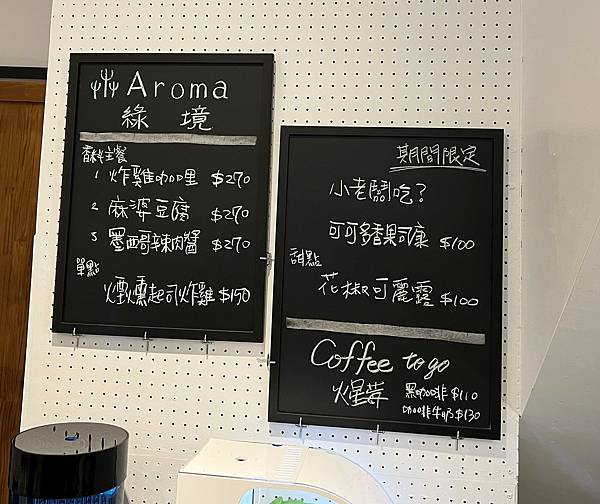 Aroma
綠境
香料主餐
1. 炸雞咖哩 $270
2. 麻婆豆腐 $270
3. 墨西哥辣肉醬 $270
單點
煙燻起司炸雞 $150
期間限定
小老闆吃?
可可多香果司康 $100
甜點
花椒可麗露 $100
Coffee to go
黑咖啡 $110
咖啡牛奶 $130